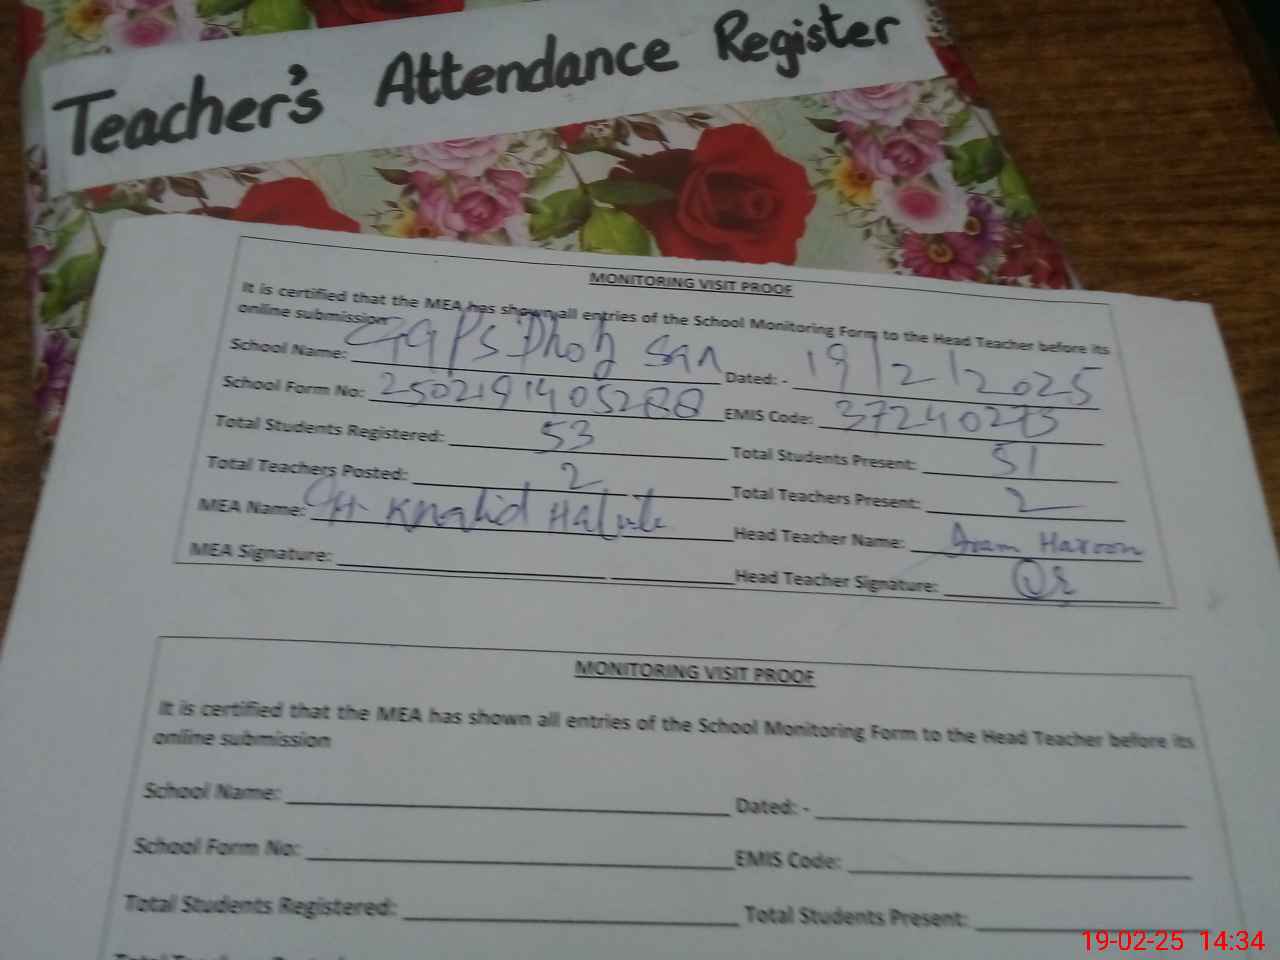 Teacher's Attendance Register
MONITORING VISIT PROOF
It is certified that the MEA has shown all entries of the School Monitoring Form to the Head Teacher before its
online submission
School Name: GGPS Dhok San Dated: - 19/2/2025
School Form No: EMIS Code: 37240273
Total Students Registered: 53 Total Students Present: 51
Total Teachers Posted: 2 Total Teachers Present: 2
MEA Name: CH Khalid Head Teacher Name: Haroon
MEA Signature: Head Teacher Signature:
MONITORING VISIT PROOF
It is certified that the MEA has shown all entries of the School Monitoring Form to the Head Teacher before its
online submission
School Name: Dated: -
School Form No: EMIS Code:
Total Students Registered: Total Students Present:
19-02-25 14:34